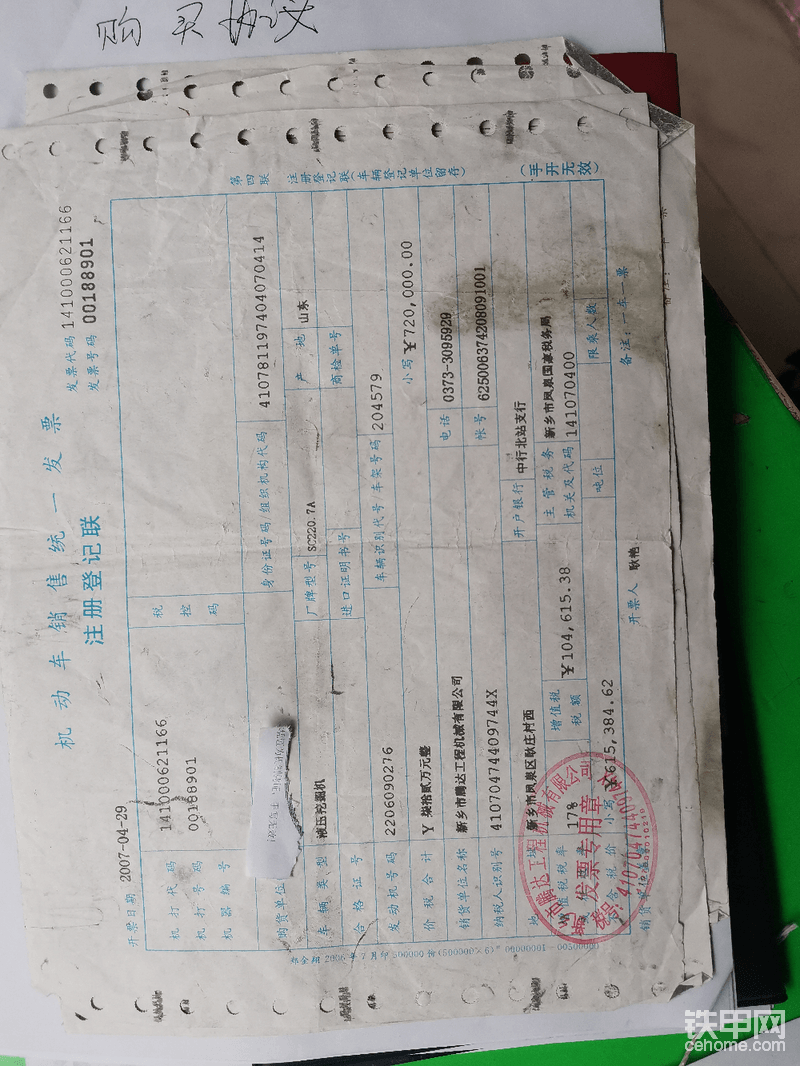 购买协议
机动车销售统一发票
注册登记联
发票代码 141000621166
发票号码 00188901
开票日期 2007-04-29
第四联 注册登记联(车辆登记单位留存)
(手开无效)
机打代码 141000621166
机打号码 00188901
机器编号
税控码
购货单位
身份证号码/组织机构代码 410781197404070414
车辆类型 液压挖掘机
厂牌型号 SC220.7A
产地 山东
合格证号
进口证明书号
商检单号
发动机号码 2206090276
车辆识别代号/车架号码 204579
价税合计 ￥柒拾贰万元整
小写 ￥720,000.00
销货单位名称 新乡市腾达工程机械有限公司
电话 0373-3095929
纳税人识别号 41070474409744X
帐号 6250063742080910​01
地址 新乡市凤泉区耿庄村西
开户银行 中行北站支行
增值税税率 17%
增值税税额 ￥104,615.38
主管税务机关及代码 新乡市凤泉国家税务局
141070400
不含税价 小写 ￥615,384.62
吨位
限乘人数
销货单位
开票人 耿艳
备注：一车一票
发票专用章
铁甲网
cehome.com